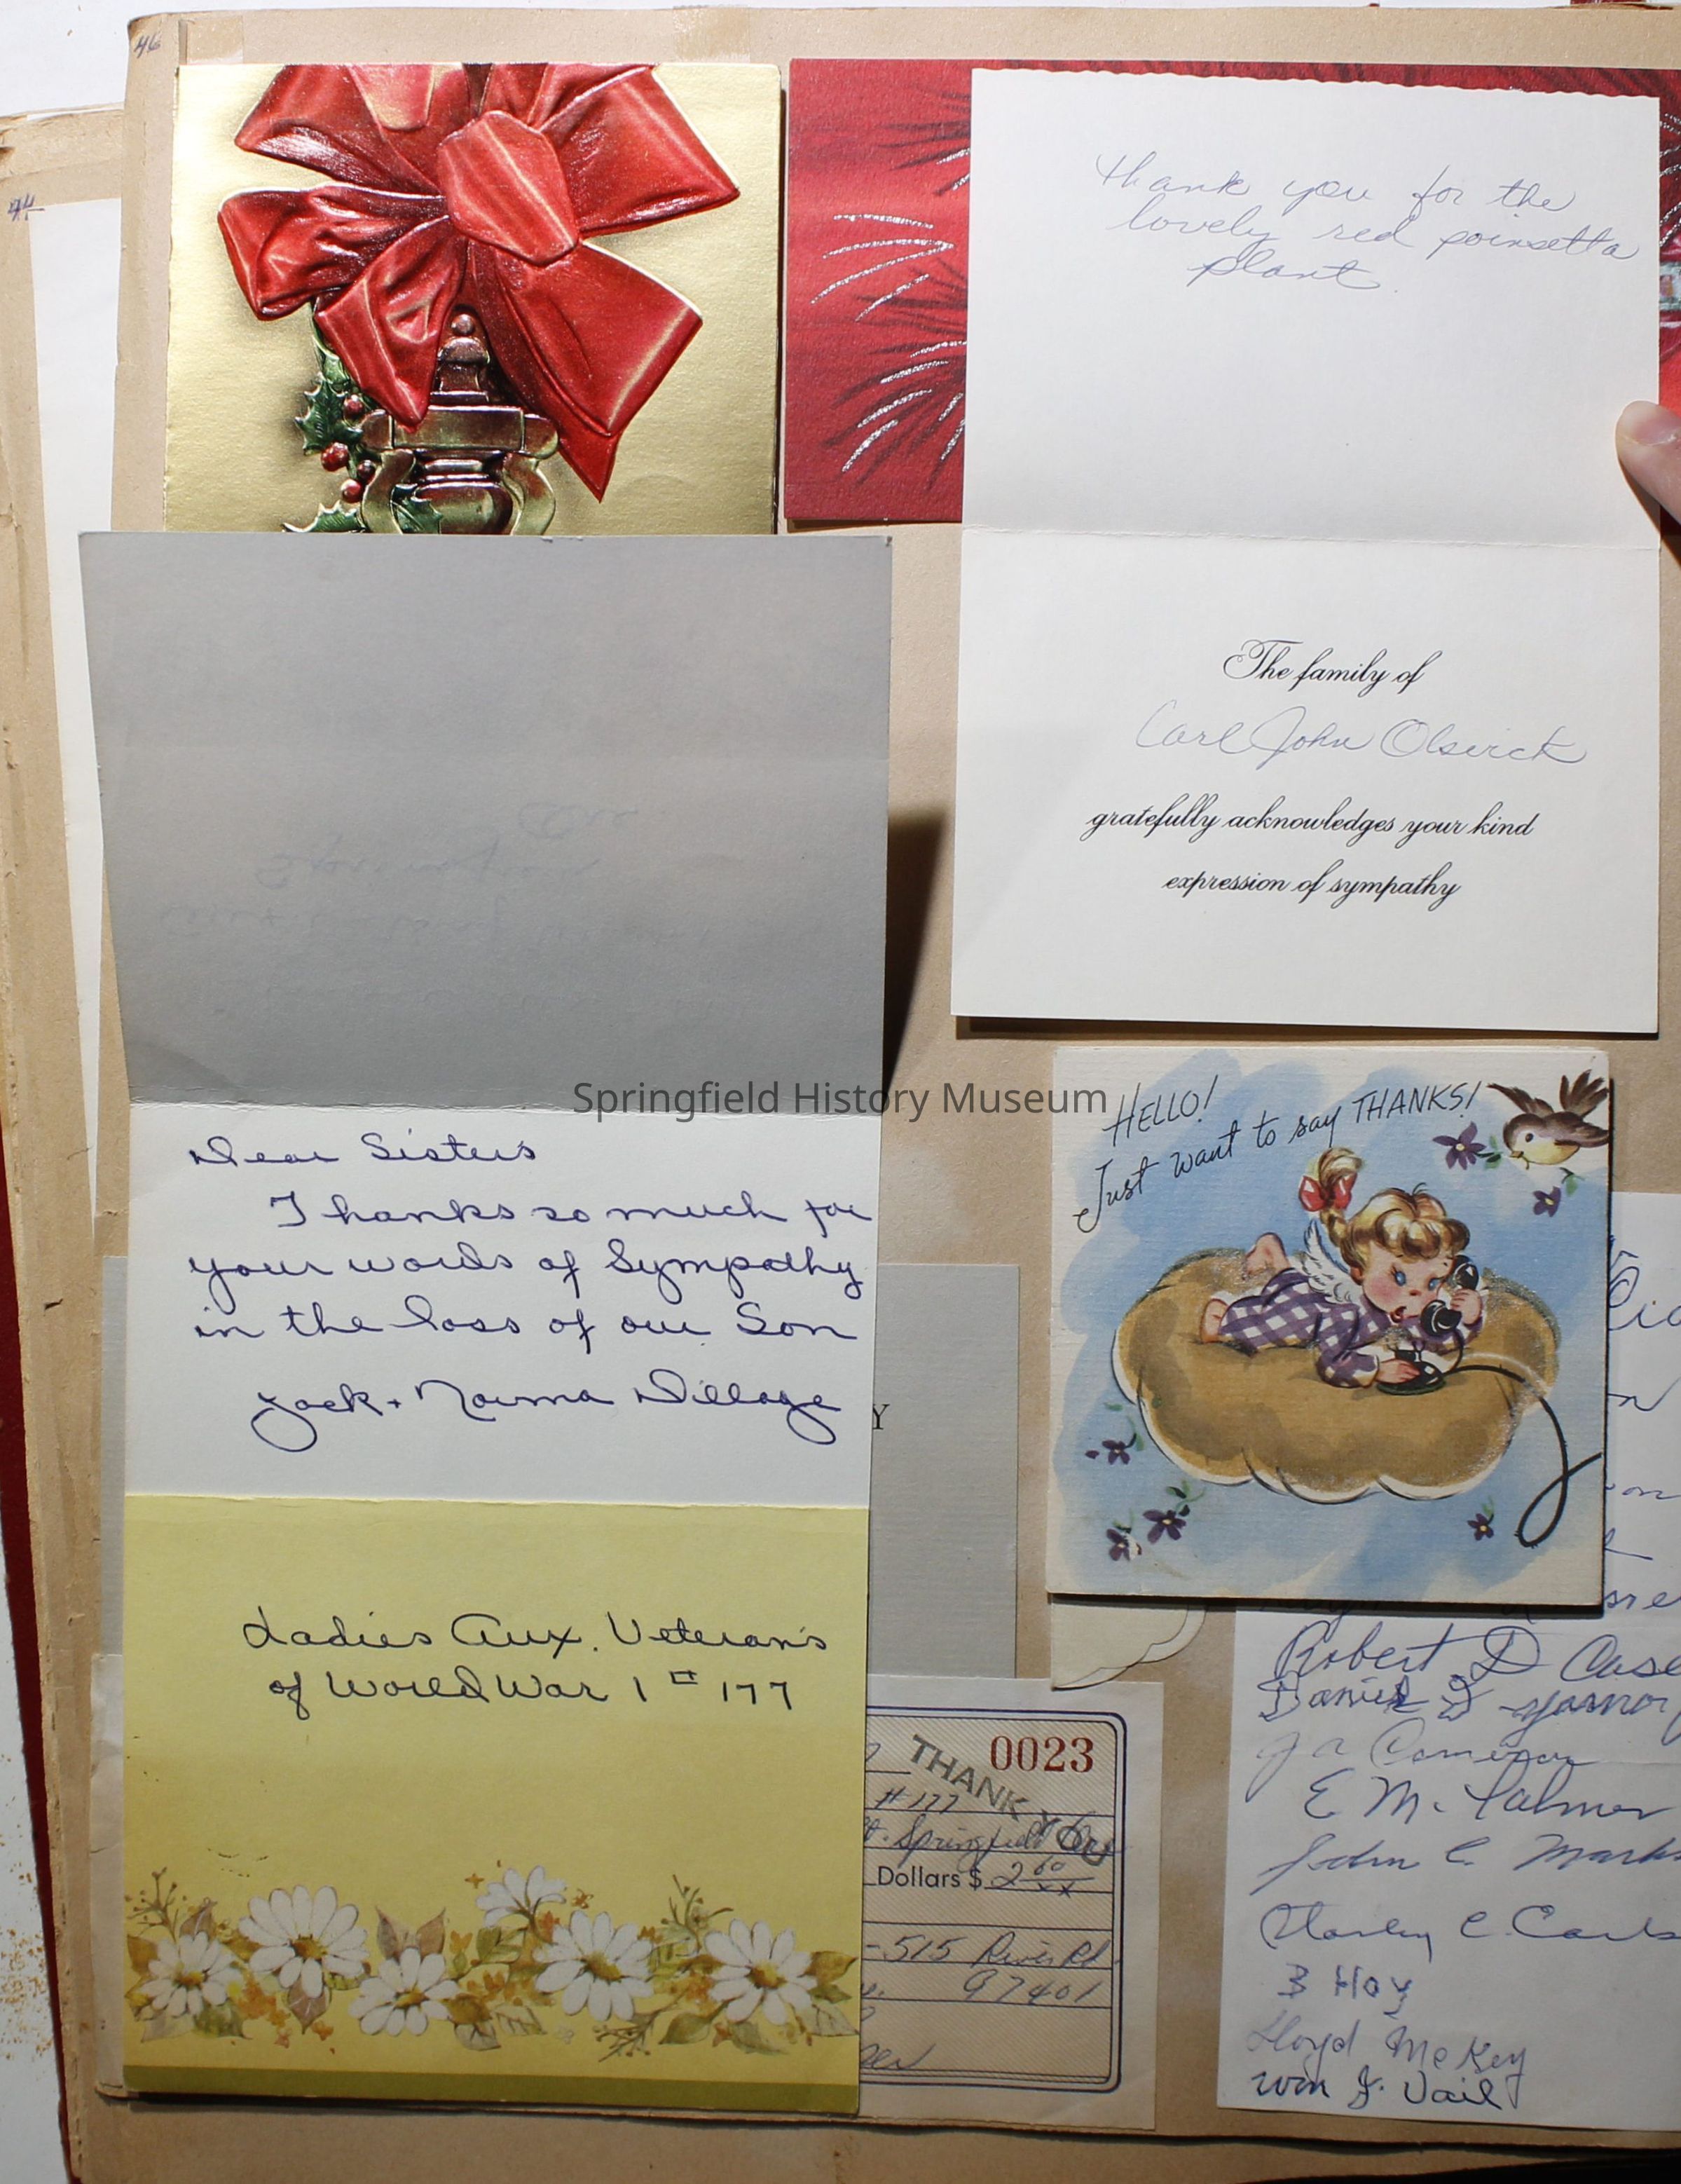 46
thank you for the
lovely red poinsetta
plant.
The family of
Carl John Olsrick
gratefully acknowledges your kind
expression of sympathy
Springfield History Museum
Dear Sisters
Thanks so much for
your words of Sympathy
in the loss of our Son
Jack + Norma Dillage
Ladies Aux. Veteran's
of World War 1 # 177
HELLO!
Just want to say THANKS!
Y
THANK YOU
0023
# 177
Springfield
Dollars $ 2 60/xx
-515 River Rd.
97401
Robert D Case
Daniel
J a Cameron
E M. Palmer
John C. Marks
Harley C. Carls
B Hoy
Lloyd McKey
Wm J. Vail